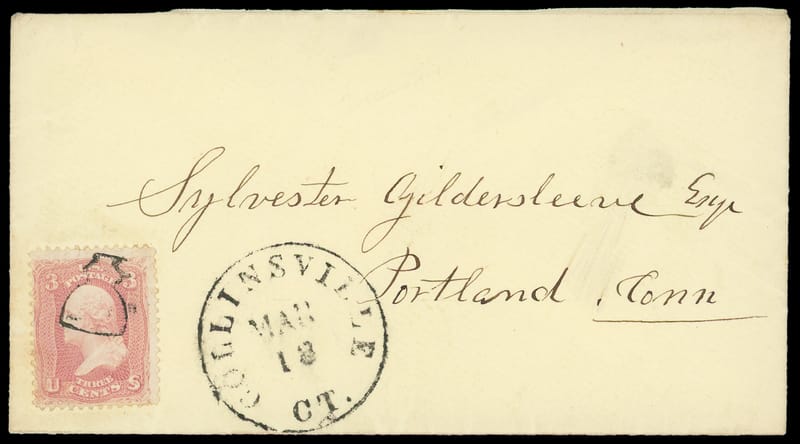 Sylvester Gildersleeve Esqr
Portland, Conn
3 3
U.S. POSTAGE
U THREE S
CENTS
COLLINSVILLE
MAR
18
CT.